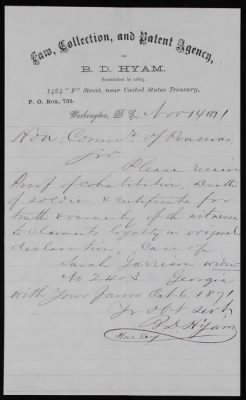 Law, Collection, and Patent Agency,
OF
B. D. HYAM.
Established in 1865.
1424 "F" Street, near United States Treasury,
P. O. BOX, 735.
Washington, D. C. Nov 14 1871
Hon. Comm'r of Pensions,
Sir
Please receive
Proof of Cohabitation, Death
of Soldier & certificate for
truth & veracity of the witnesses
to claimants loyalty in original
declaration, Case of
Sarah Garrison widow
No 2403 Georgia
with Your favor Oct 6 1871
Yr Obt Servt
B. D. Hyam